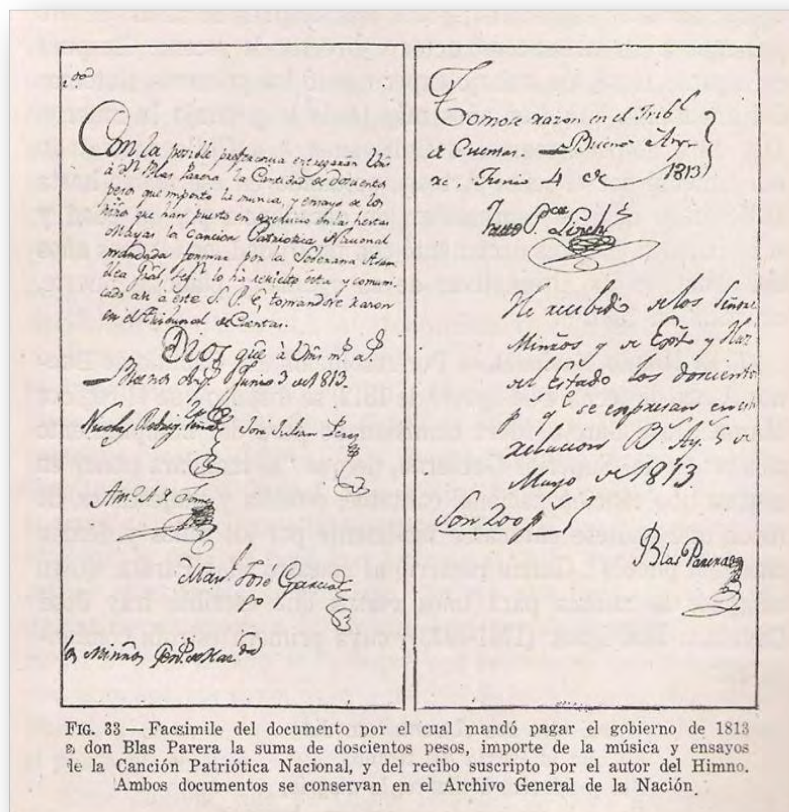 Con la posible preferencia entregarán Vms
à Dn Blas Parera la Cantidad de doscientos
pesos que importó la musica, y ensayo de los
niños que han puesto en exercicio de las fiestas
Mayas la Cancion Patriotica Nacional
mandada formar por la Soberana Asam
blea Gral, segn lo ha resuelto ésta y comuni
cado asi à este S. P. E, tomandose razon
en el Tribunal de Cuentas.
Dios gue à Vms ms as
Buenos Ays Junio 3 de 1813.
Nicolas Rodrigz Peña José Julian Perez
Manl José Garcia
po
los Minños Gen. de Hazda
Tomose razon en el Tribl
de Cuentas. Buenos Ays
Junio 4 de 1813
Linch
He recibido de los Señores
Minños g de Extó y Haz
del Estado los doscientos
ps qe se expresan en esta
relacion Bs Ays 5 de
Mayo de 1813
Son 200 ps
Blas Parera
FIG. 33 — Facsímile del documento por el cual mandó pagar el gobierno de 1813
a don Blas Parera la suma de doscientos pesos, importe de la música y ensayos
de la Canción Patriótica Nacional, y del recibo suscripto por el autor del Himno.
Ambos documentos se conservan en el Archivo General de la Nación.